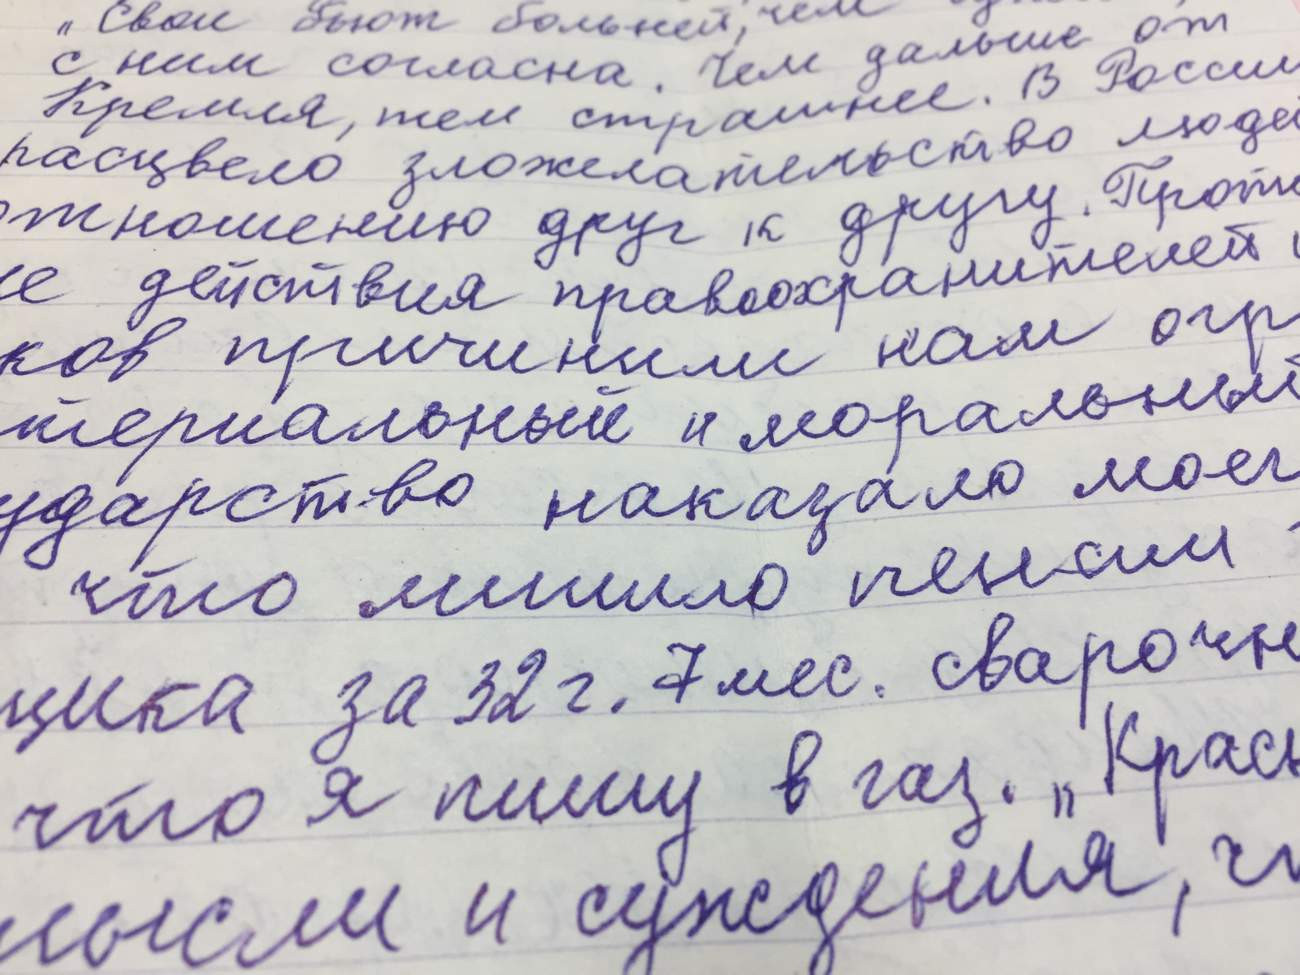 „Свои бьют больней, чем
с ним согласна. Чем дальше от
Кремля, тем страшнее. В России
расцвело зложелательство людей
отношению друг к другу. Проти
ие действия правоохранителей и
ков причинили нам огр
териальный и моральный
ударство наказало моег
что лишило пенсии
щика за 32 г. 7 мес. сварочн
что я пишу в газ. „Красн
мысли и суждения, чт